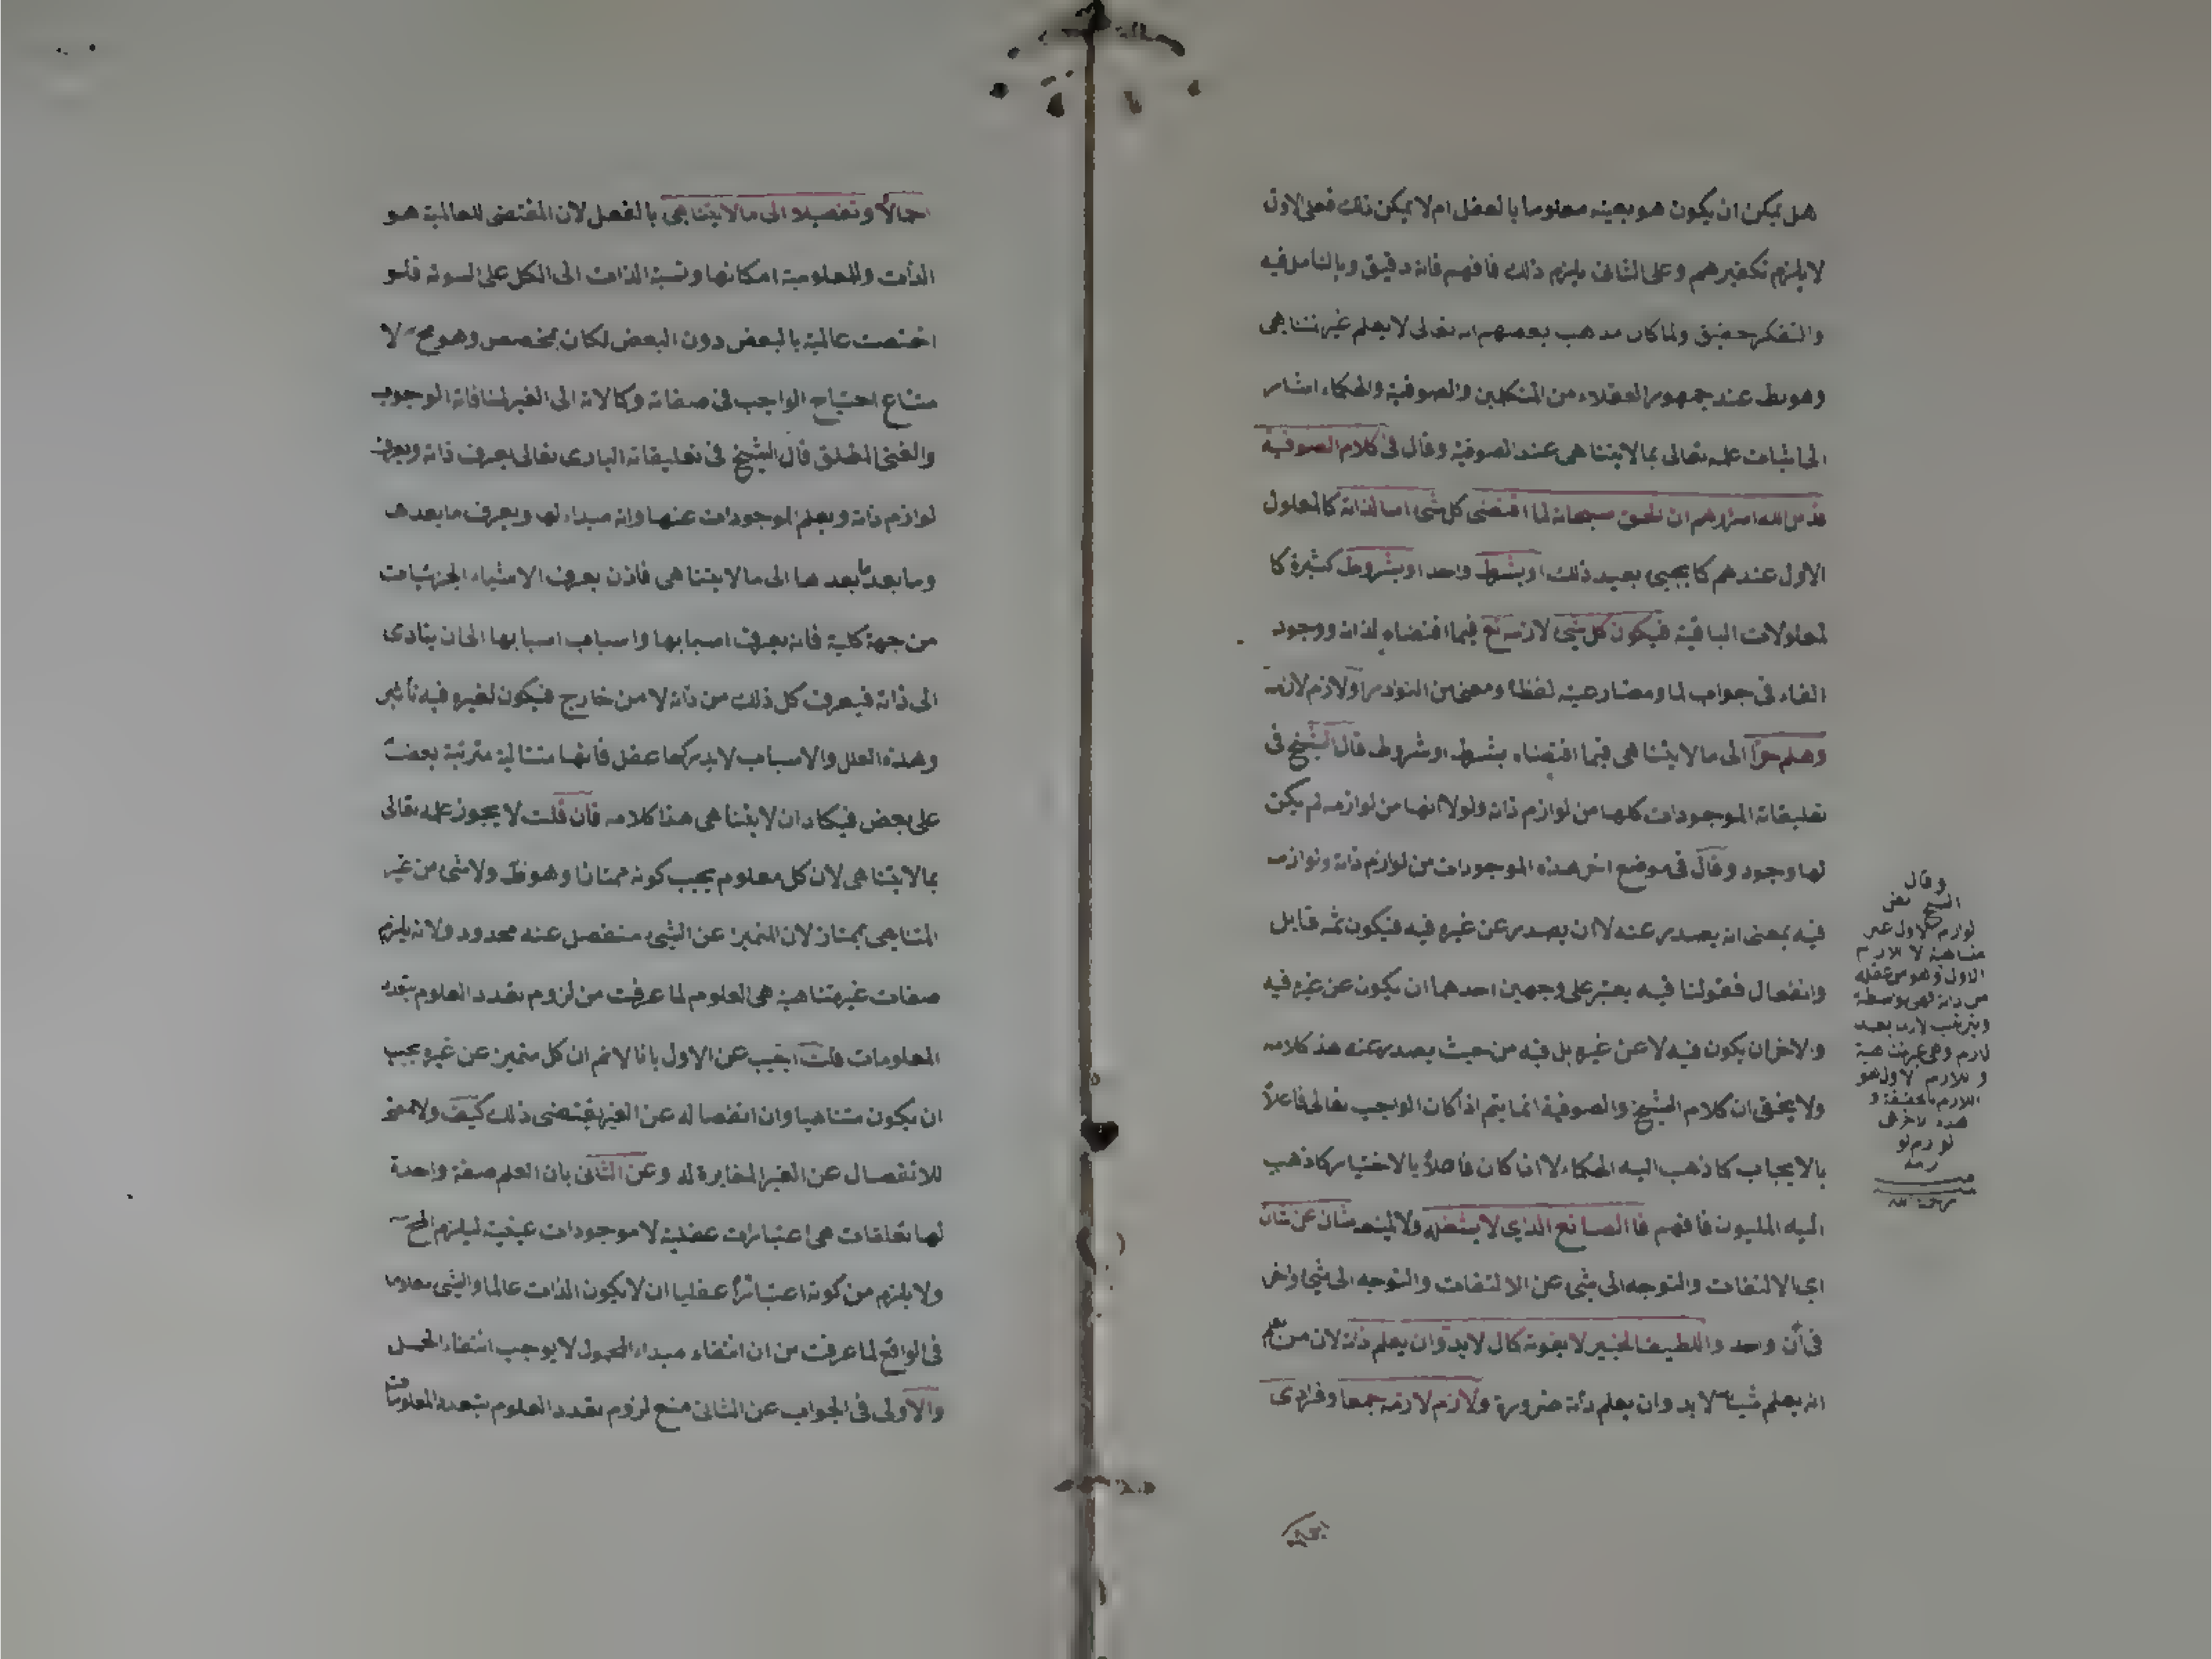 هل يمكن ان يكون هو بعينه معلوما بالفعل ام لا يمكن ذلك فعلى الاول
لا يلزم تكفيرهم وعلى الثانى يلزم ذلك فافهم فانه دقيق وبالتامل فيه
والتفكر حقيق ولما كان مذهب بعضهم انه تعالى لا يعلم غير متناهى
وهو بط عند جمهور العقلاء من المتكلمين والصوفية والحكماء اشار
الى اثبات علمه تعالى بما لا يتناهى عند الصوفية وقال فى كلام الصوفية
قدس الله اسرارهم ان الحق سبحانه لما اقتضى كل شئ اما لذاته كالمعلول
الاول عندهم كما يجيئ بعيد ذلك او بشرط واحد او بشروط كثيرة كا
لمعلولات الباقية فيكون كل شئ لازمه فيما اقتضاه لذاته ووجود
الفاء فى جواب لما ومضارعيته لفظا ومعنى من النوادر او لازم لازمه
وهلم جرّا الى ما لا يتناهى فيما اقتضاه بشرط او شروط قال الشيخ فى
تعليقاته الموجودات كلها من لوازم ذاته ولولا انها من لوازمه لم يكن
لها وجود وقال فى موضع اخر هذه الموجودات من لوازم ذاته ولوازمه
فيه بمعنى انه يصدر عنه لا ان يصدر عن غيره فيه فيكون ثمه قابل
وانفعال فقولنا فيه يعتبر على وجهين احدهما ان يكون عن غيره فيه
والاخر ان يكون فيه لا عن غيره بل فيه من حيث يصدر عنه هذ كلامه
ولا يخفى ان كلام الشيخ والصوفية انما يتم اذا كان الواجب تعالى فاعلاً
بالايجاب كما ذهب اليه الحكماء لا ان كان فاعلاً بالاختيار كما ذهب
اليه المليون فافهم فا الصانع الذي لا يشغله شان عن شان
اي الالتفات والتوجه الى شئ عن الالتفات والتوجه الى شئ اخر
فى آن واحد واللطيف الخبير لا يفوته كمال لا بد وان يعلم ذاته لان من
انه يعلم شيئا لا بد وان يعلم ذاته ضرورة ولازم لازمه جمعا وفرادى
وقال
الشيخ
لوازم الاول غير
متناهية لا اللازم
الاول وهو من عقله
من ذاته فهى بواسطة
لازم بعد
لازم وهى غير متناهية
و اللازم الاول هو
اللازم بالحقيقة و
هذه الاخر هى
لوازم لو
ازمه
رحمه الله
اجمالاً وتفصيلا الى ما لا يتناهى بالفعل لان المقتضى للعالمية هو
الذات وللمعلومية امكانها ونسبة الذات الى الكل على السوية فلو
اختصت عالمية بالبعض دون البعض لكان بمخصص وهو مح لا
متناع احتياج الواجب فى صفاته وكمالاته الى الغير لمنافاته الوجوب
والغنى المطلق قال الشيخ فى تعليقاته البارى تعالى يعرف ذاته ويعرف
لوازم ذاته ويعلم الموجودات عنها وانه مبداء لها ويعرف ما بعدها
وما بعد ما بعدها الى ما لا يتناهى فاذن يعرف الاشياء الجزئيات
من جهة كلية فانه يعرف اسبابها واسباب اسبابها الى ان يتادى
الى ذاته فيعرف كل ذلك من ذاته لا من خارج فيكون لغيره فيه تاثير
وهذه العلل والاسباب لا يدركها عقل فانها متتالية مترتبة بعضا
على بعض فيكاد ان لا يتناهى هذا كلامه فان قلت لا يجوز علمه تعالى
بما لا يتناهى لان كل معلوم يجب كونه ممتازا وهو ظ ولا شئ من غير
المتناهى بممتاز لان المتميز عن الشئ منفصل عنه محدود ولانه يلزم
صفات غير متناهية هى العلوم لما عرفت من لزوم تعدد العلوم بتعدد
المعلومات قلت اجيب عن الاول بانا لا نم ان كل متميز عن غيره يجب
ان يكون متناهيا وان انفصاله عن الغير يقتضى ذلك كيف ولا معنى
للانفصال عن الغير الا مغايرة له وعن الثانى بان العلم صفة واحدة
لها تعلقات هى اعتبارات عقلية لا موجودات عينية ليلزم المح
ولا يلزم من كونه اعتبارا عقليا ان لا يكون الذات عالما والشئ معلوما
فى الواقع لما عرفت من ان انتفاء مبداء المحمول لا يوجب انتفاء الحمل
والاولى فى الجواب عن الثانى منع لزوم تعدد العلوم بتعدد المعلومات